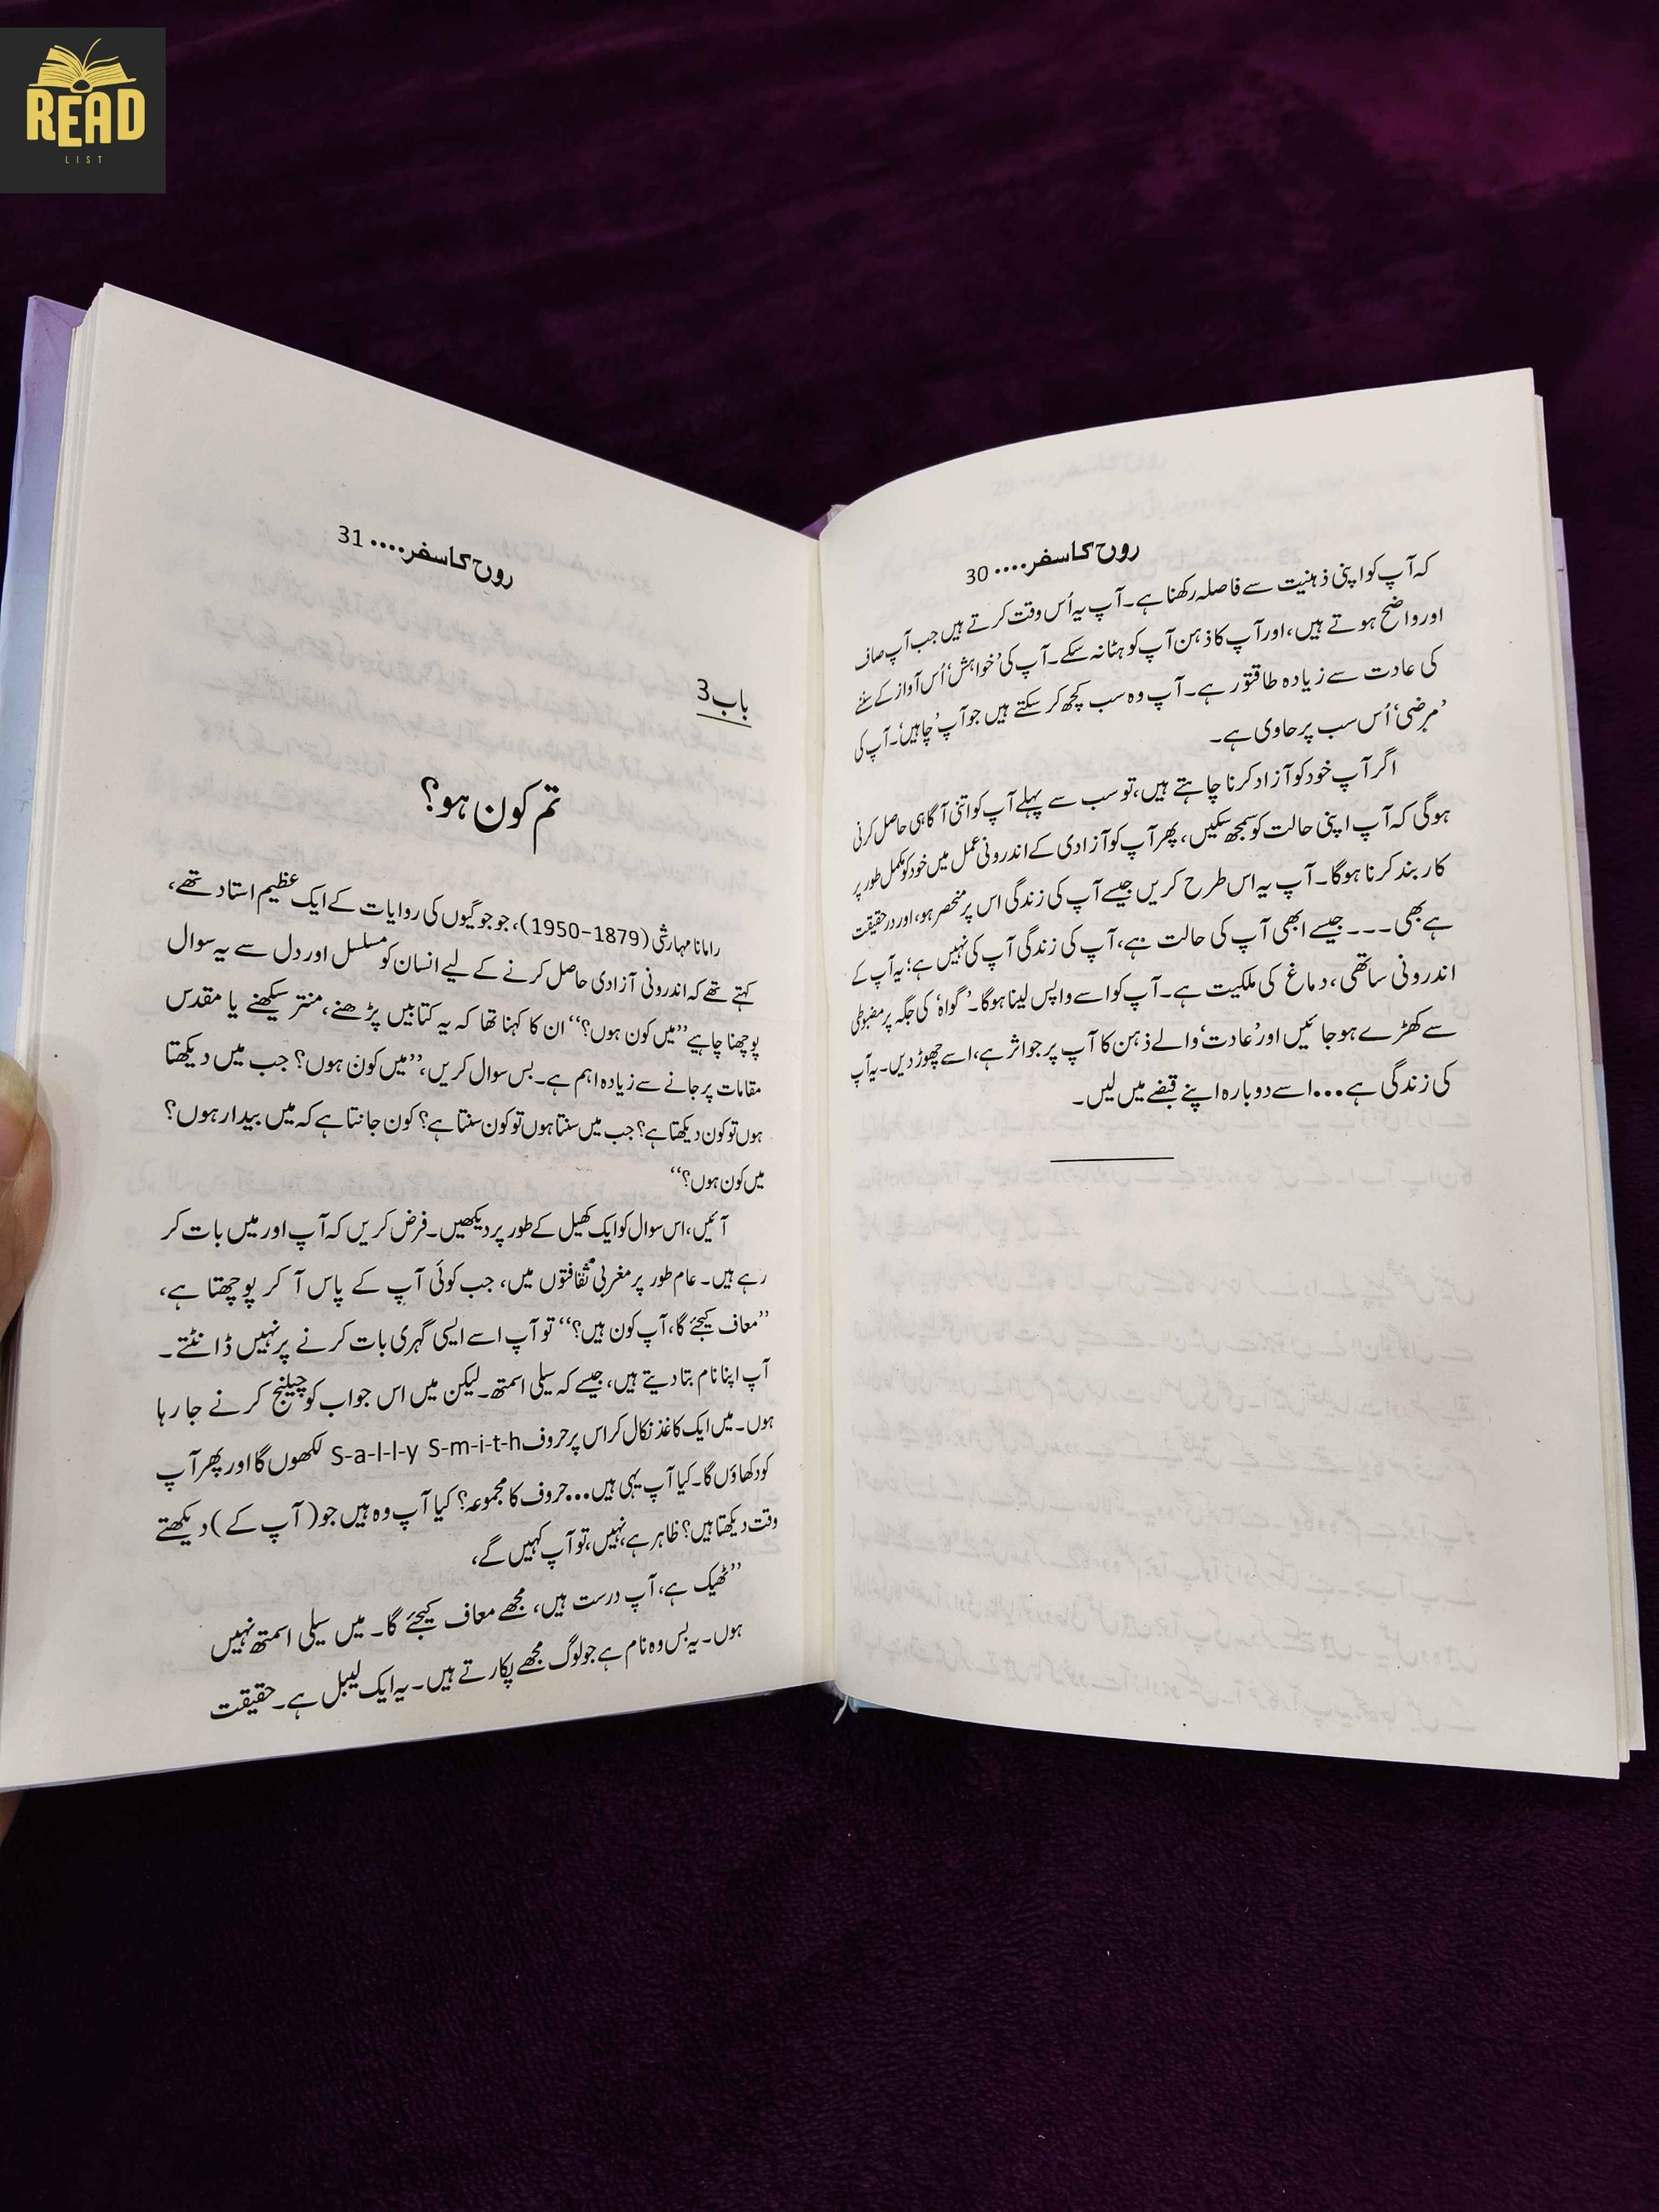 READ
LIST
روح کا سفر.... 30
کہ آپ کو اپنی ذہنیت سے فاصلہ رکھنا ہے۔ آپ یہ اُس وقت کرتے ہیں جب آپ صاف
اور واضح ہوتے ہیں، اور آپ کا ذہن آپ کو ہٹا نہ سکے۔ آپ کی ’خواہش‘ اُس آواز کے سننے
کی عادت سے زیادہ طاقتور ہے۔ آپ وہ سب کچھ کر سکتے ہیں جو آپ ’چاہیں‘۔ آپ کی
’مرضی‘ اُس سب پر حاوی ہے۔
اگر آپ خود کو آزاد کرنا چاہتے ہیں، تو سب سے پہلے آپ کو اتنی آگاہی حاصل کرنی
ہوگی کہ آپ اپنی حالت کو سمجھ سکیں، پھر آپ کو آزادی کے اندرونی عمل میں خود کو مکمل طور پر
کاربند کرنا ہوگا۔ آپ یہ اس طرح کریں جیسے آپ کی زندگی اس پر منحصر ہو، اور درحقیقت
ہے بھی۔۔۔ جیسے ابھی آپ کی حالت ہے، آپ کی زندگی آپ کی نہیں ہے؛ یہ آپ کے
اندرونی ساتھی، دماغ کی ملکیت ہے۔ آپ کو اسے واپس لینا ہوگا۔ ’گواہ‘ کی جگہ پر مضبوطی
سے کھڑے ہو جائیں اور ’عادت‘ والے ذہن کا آپ پر جو اثر ہے، اسے چھوڑ دیں۔ یہ آپ
کی زندگی ہے... اسے دوبارہ اپنے قبضے میں لیں۔
روح کا سفر.... 31
باب 3
تم کون ہو؟
رامانا مہارشی (1879-1950)، جو جوگیوں کی روایات کے ایک عظیم استاد تھے،
کہتے تھے کہ اندرونی آزادی حاصل کرنے کے لیے انسان کو مسلسل اور دل سے یہ سوال
پوچھنا چاہیے ”میں کون ہوں؟“ ان کا کہنا تھا کہ یہ کتابیں پڑھنے، منتر سیکھنے یا مقدس
مقامات پر جانے سے زیادہ اہم ہے۔ بس سوال کریں، ”میں کون ہوں؟ جب میں دیکھتا
ہوں تو کون دیکھتا ہے؟ جب میں سنتا ہوں تو کون سنتا ہے؟ کون جانتا ہے کہ میں بیدار ہوں؟
میں کون ہوں؟“
آئیں، اس سوال کو ایک کھیل کے طور پر دیکھیں۔ فرض کریں کہ آپ اور میں بات کر
رہے ہیں۔ عام طور پر مغربی ثقافتوں میں، جب کوئی آپ کے پاس آ کر پوچھتا ہے،
”معاف کیجئے گا، آپ کون ہیں؟“ تو آپ اسے ایسی گہری بات کرنے پر نہیں ڈانٹتے۔
آپ اپنا نام بتا دیتے ہیں، جیسے کہ سیلی اسمتھ۔ لیکن میں اس جواب کو چیلنج کرنے جا رہا
ہوں۔ میں ایک کاغذ نکال کر اس پر حروف S-a-l-l-y S-m-i-t-h لکھوں گا اور پھر آپ
کو دکھاؤں گا۔ کیا آپ یہی ہیں... حروف کا مجموعہ؟ کیا آپ وہ ہیں جو (آپ کے) دیکھتے
وقت دیکھتا ہیں؟ ظاہر ہے، نہیں، تو آپ کہیں گے،
”ٹھیک ہے، آپ درست ہیں، مجھے معاف کیجئے گا۔ میں سیلی اسمتھ نہیں
ہوں۔ یہ بس وہ نام ہے جو لوگ مجھے پکارتے ہیں۔ یہ ایک لیبل ہے۔ حقیقت